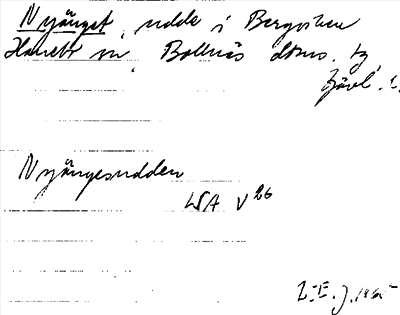 Nyänget, udde i Bergviken
Hanebo sn, Bollnäs dtrus. tg
Gävl. l.
Nyängesudden
LSA V 26